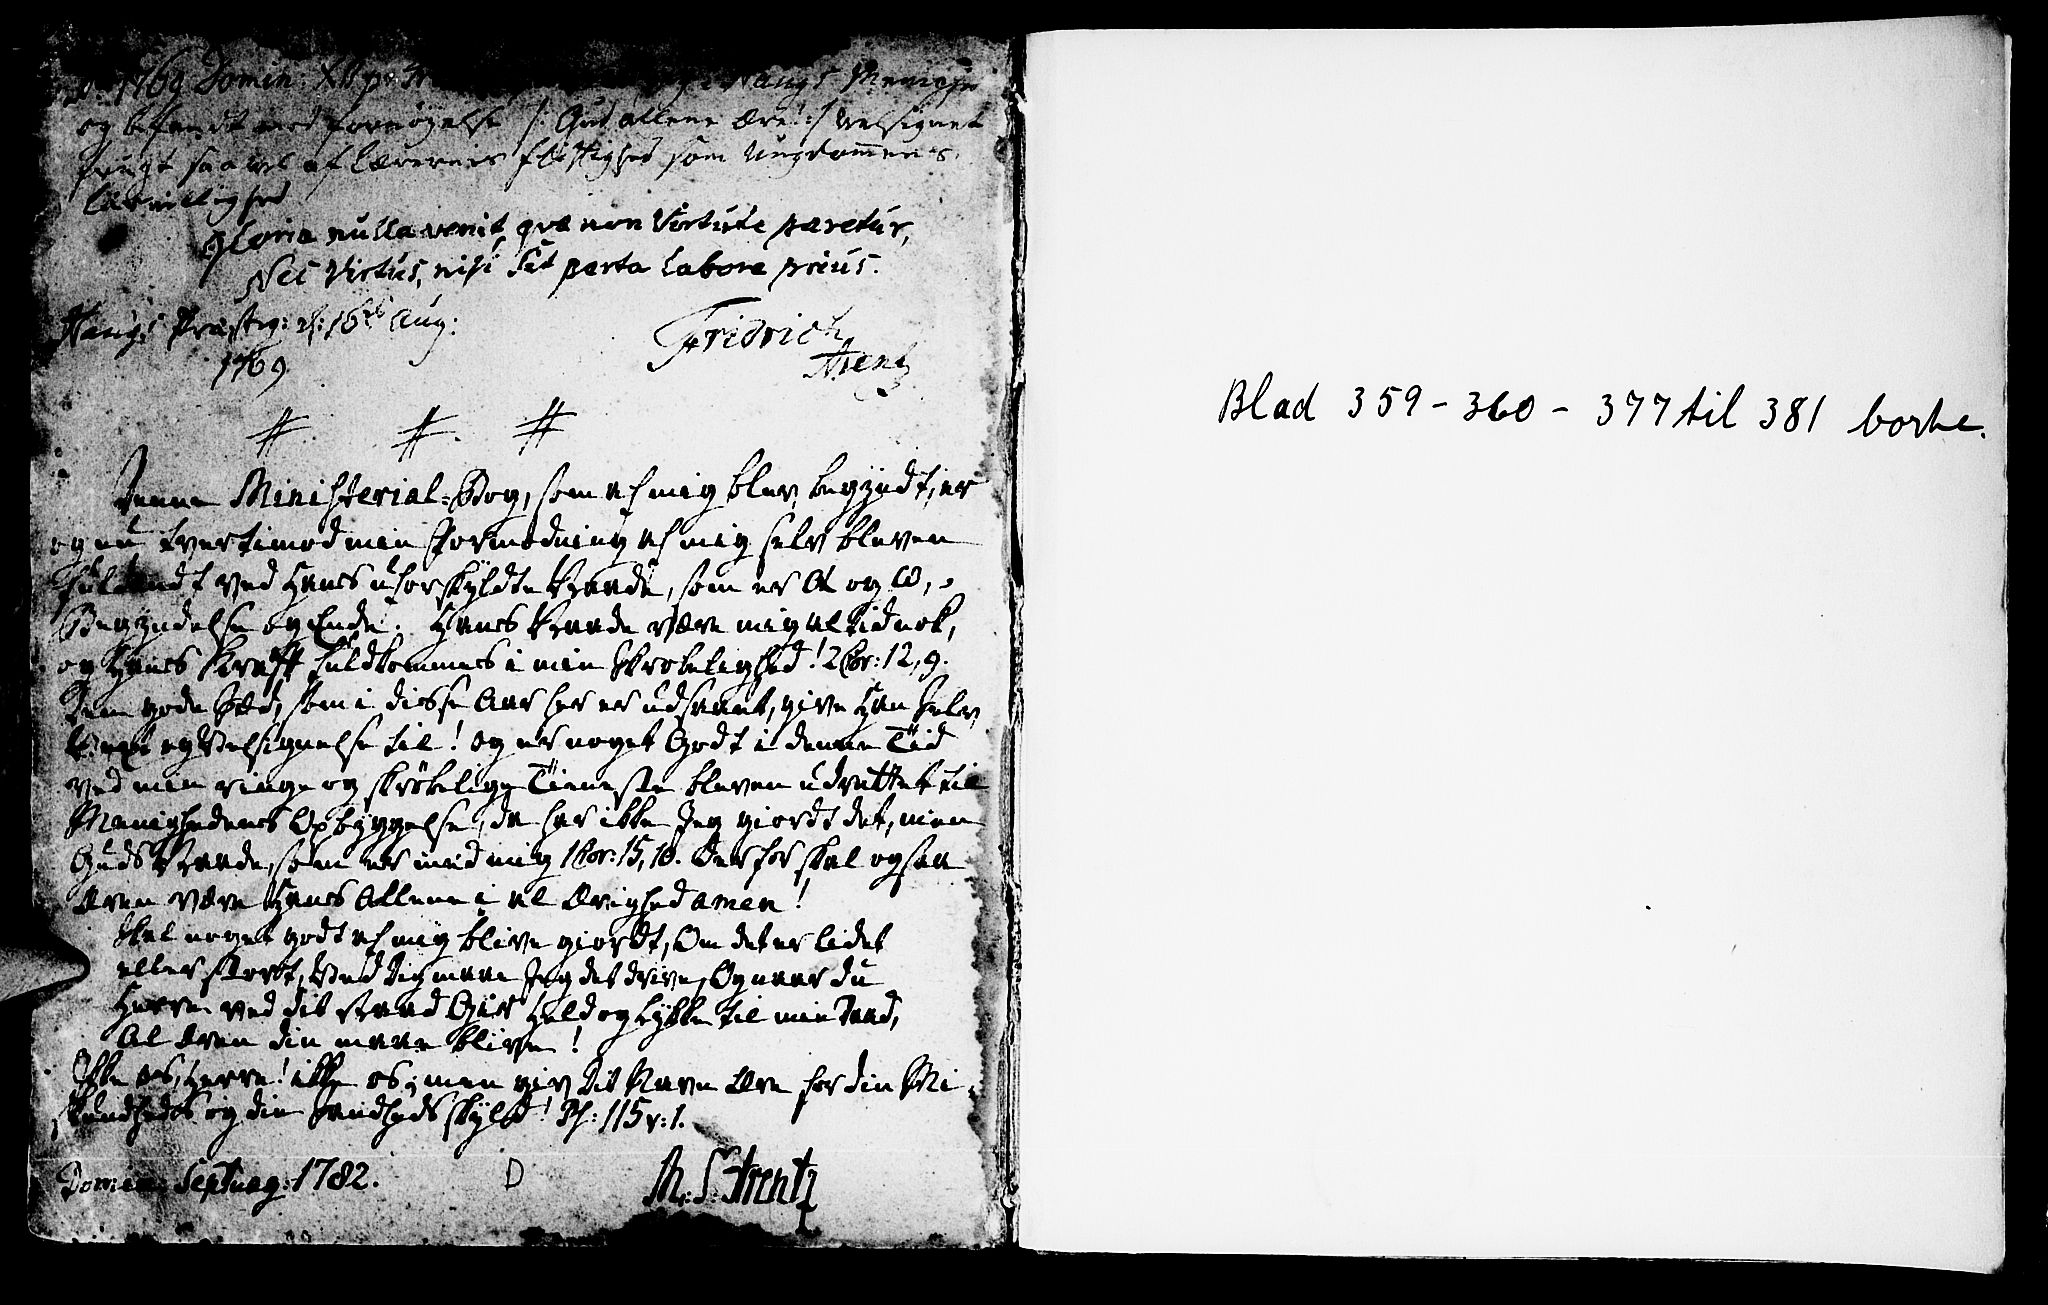 1769 Domin: XII p. Tr. Haugs Menighe
og befandt med fornöyelse /: Gud allene ære! :/ velsignet
frugt saa vel af Lærernes flittighed som Ungdommens
lærvillighed
Gloria nulla venit, qvæ non Virtute paretur,
Nec Virtus, nisi sit parta Labore prius.
Haugs Præsteg: d: 16de Aug:
1769
Fridrich
Arentz
Denne Ministerial-Bog, som af mig blev begyndt, er
og nu tvertimod min Formodning af mig selv bleven
fuldendt ved Hans uforskyldte Naade, som er A og O,
Begyndelse og Ende. Hans Naade være mig altid nok,
og Hans Kraft fuldkommes i min Skrøbelighed! 2 Cor: 12, 9.
Den gode Sæd, som i disse Aar her er udsaaet, give Han selv
Vext og Velsignelse til! Og er noget Godt i denne Tid
ved min ringe og skrøbelige Tieneste bleven udrettet til
Menighedens Opbyggelse, da har ikke Jeg giordt det, men
Guds Naade, som er med mig 1 Cor: 15, 10. Derfor skal ogsaa
Æren være Hans Allene i al Ævighed amen!
Skal noget godt af mig blive giordt, Om det er lidet
eller stort, Ved dig maae Jeg det drive, Og naar du
Herre ved dit Raad Gier Held og Lykke til min Daad,
Al Æren din maae blive!
Ikke os, Herre! ikke os; men giv dit Navn Ære for din Mi
skundheds og din Sandheds skyld! Ps: 115 v: 1.
Domin: Septuag: 1782.
M: S: Arentz
Blad 359 - 360 - 377 til 381 borte.